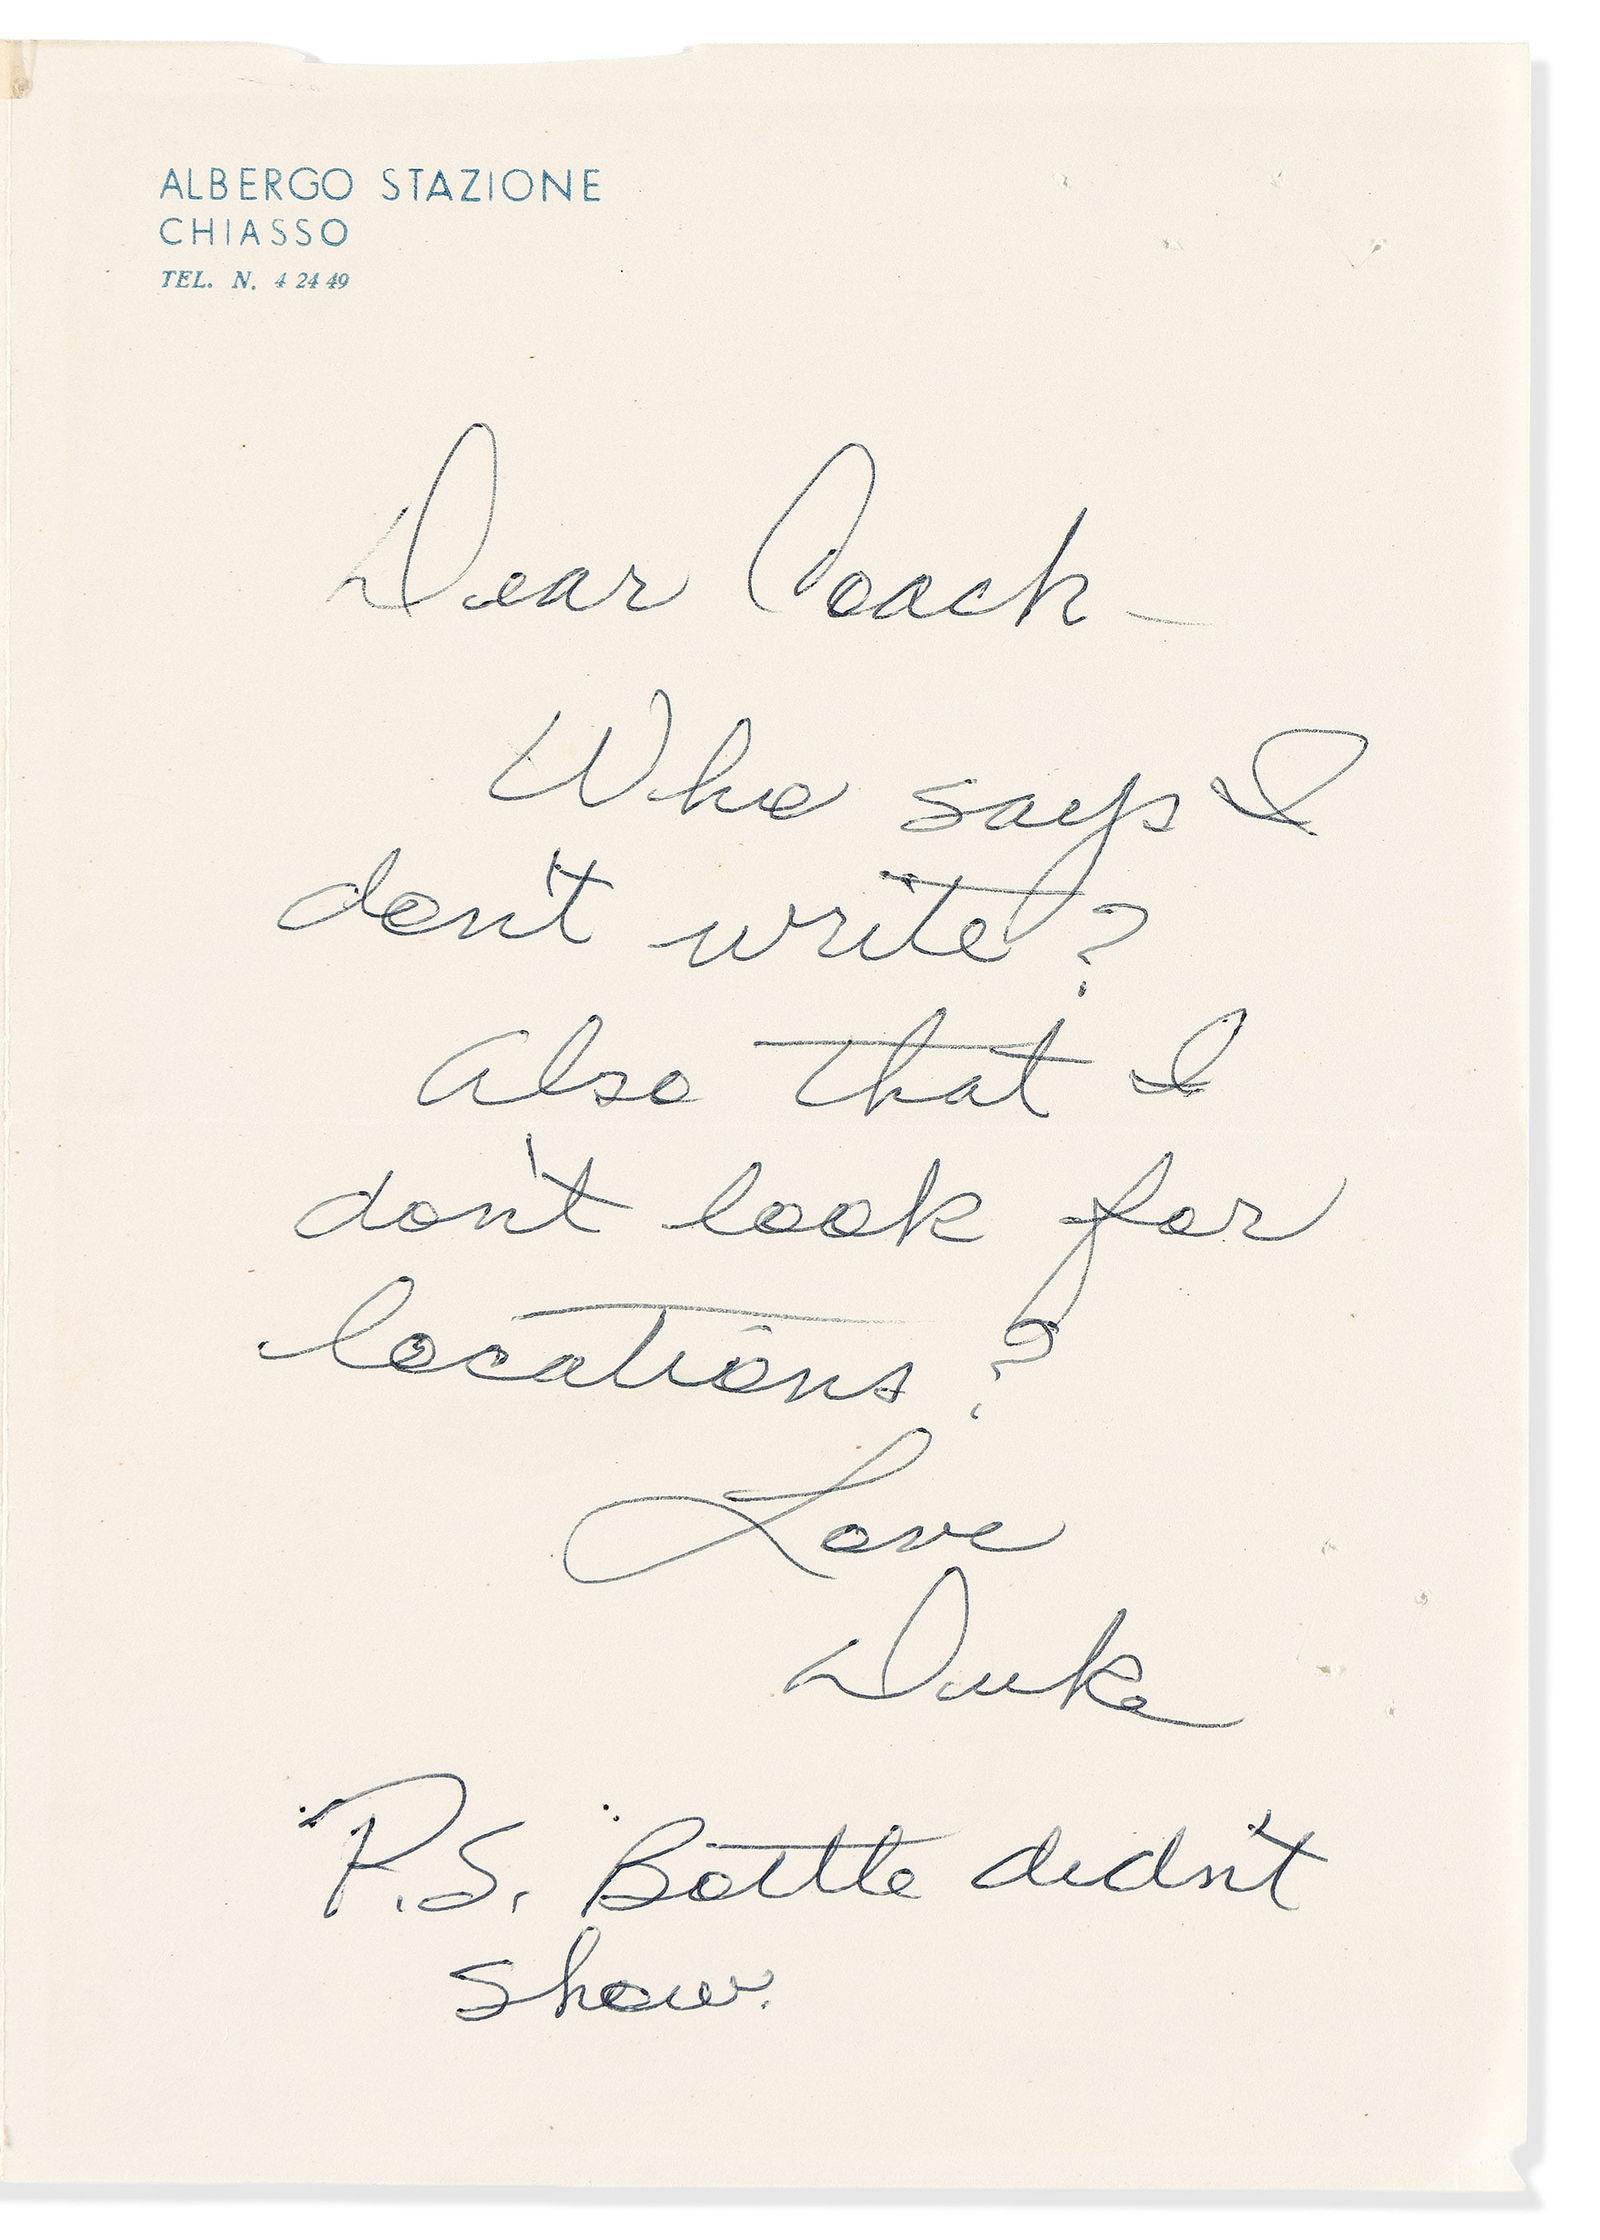 ALBERGO STAZIONE
CHIASSO
TEL. N. 4 24 49
Dear Coach —
Who says I
don't write?
Also that I
don't look for
locations?
Love
Duke
P.S. Bottle didn't
show.